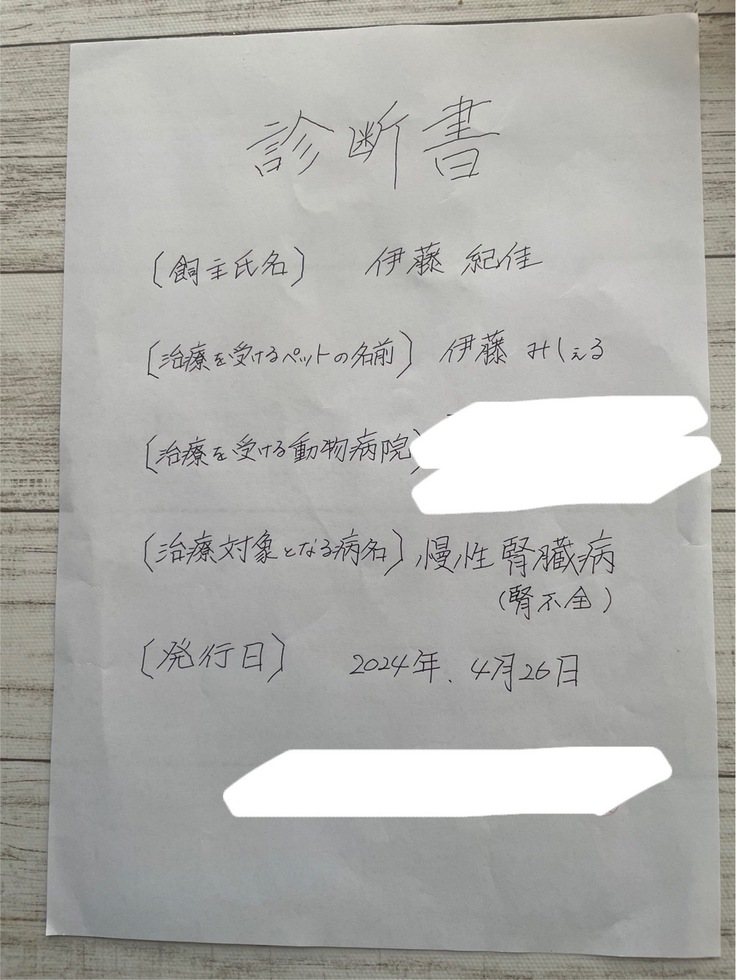 診断書
〔飼主氏名〕 伊藤 紀佳
〔治療を受けるペットの名前〕 伊藤 みしぇる
〔治療を受ける動物病院〕
〔治療対象となる病名〕 慢性腎臓病
(腎不全)
〔発行日〕 2024年.4月26日